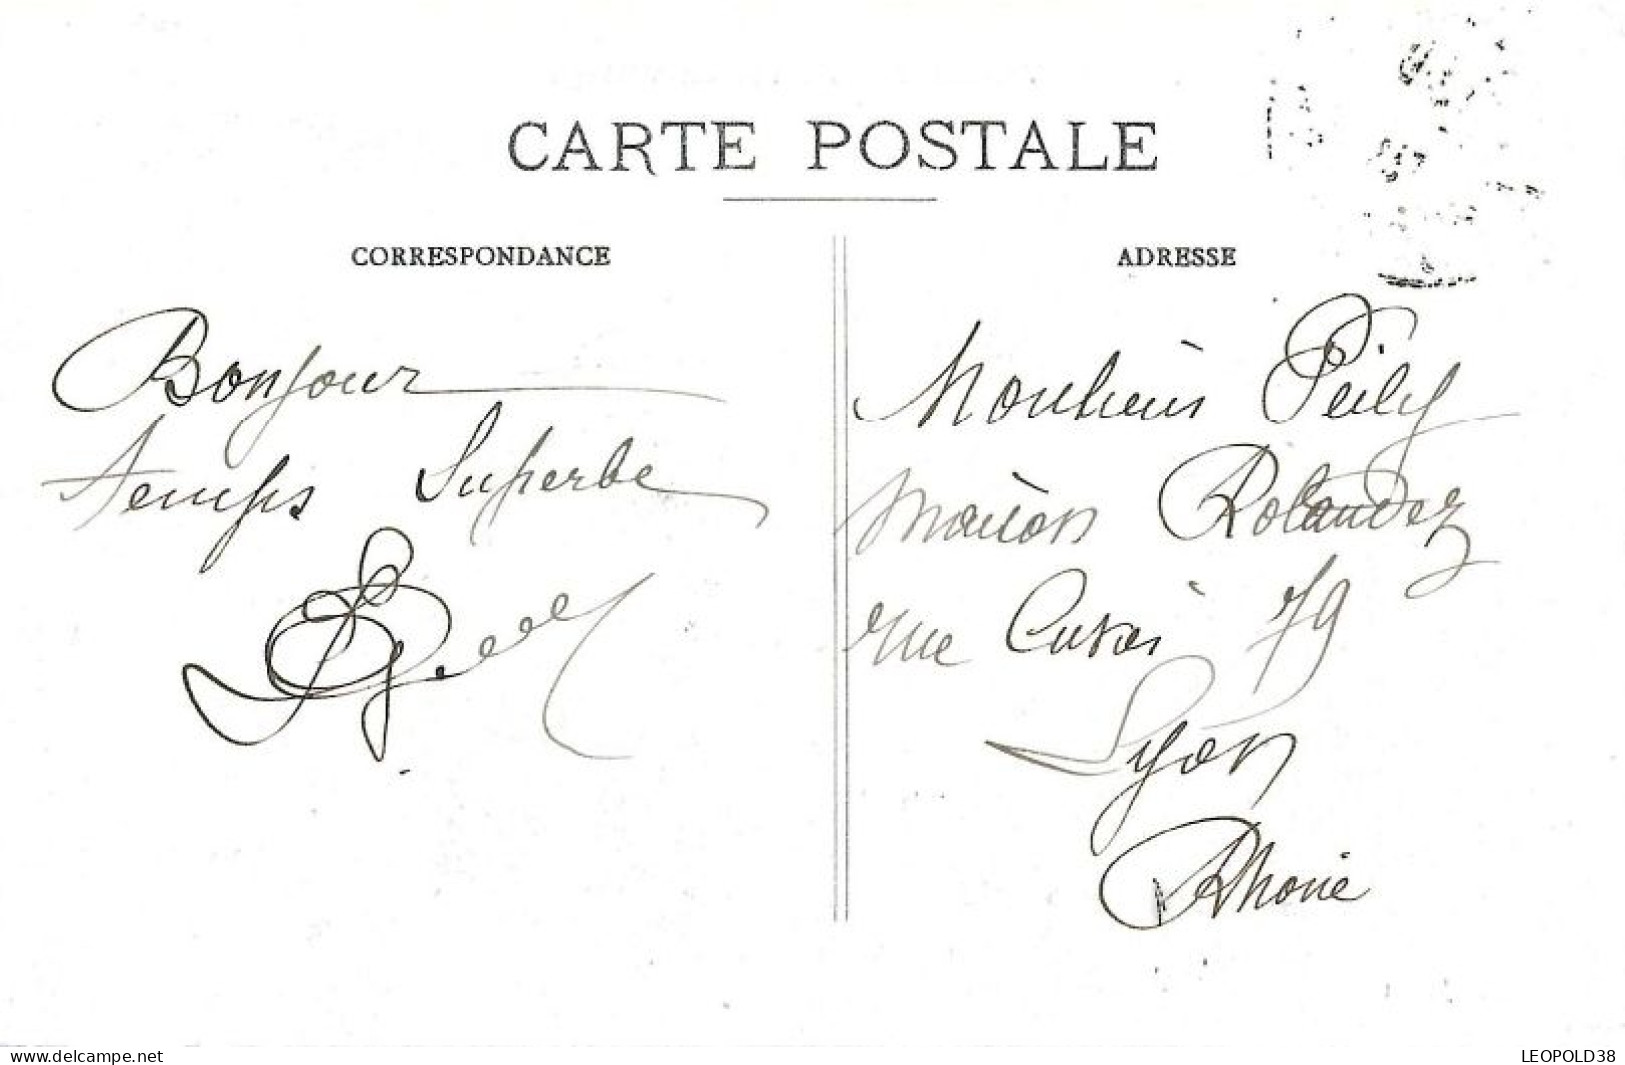 CARTE POSTALE
CORRESPONDANCE
Bonjour
temps Superbe
ADRESSE
Monsieur Peily
Maison Rolandez
rue Cuvier 79
Lyon
Rhône
www.delcampe.net
LEOPOLD38